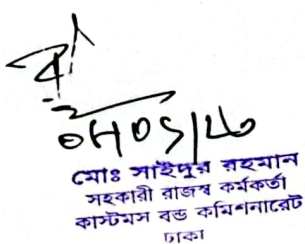 মোঃ সাইদুর রহমান
সহকারী রাজস্ব কর্মকর্তা
কাস্টমস বন্ড কমিশনারেট
ঢাকা